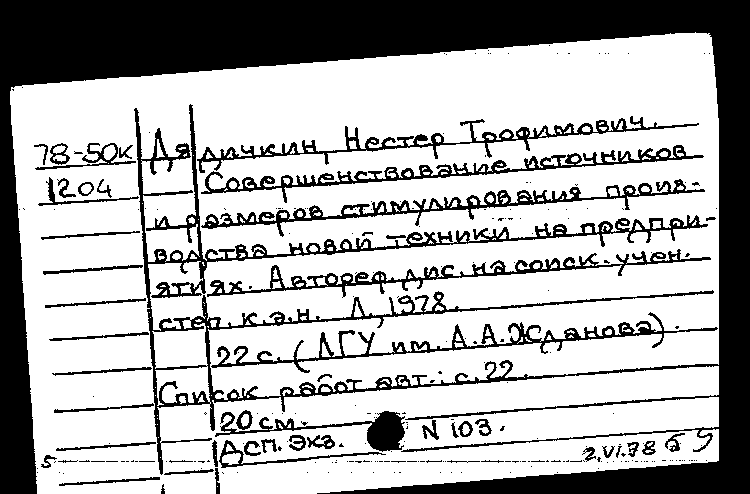 78-50к Дядичкин, Нестер Трофимович.
1204 Совершенствование источников
и размеров стимулирования произ-
водства новой техники на предпри-
ятиях. Автореф. дис. на соиск. учен.
степ. к.э.н. Л., 1978.
22 с. (ЛГУ им. А.А.Жданова).
Список работ авт.: с. 22.
20 см.
ДСП. Экз. N 103.
5 2.VI.78